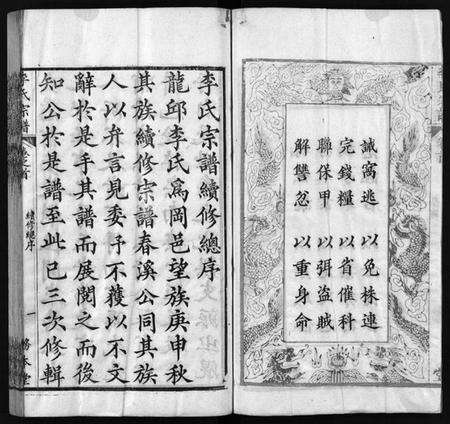 誡窩逃 以免株連
完錢糧 以省催科
聯保甲 以弭盜賊
解讐忿 以重身命
李氏宗譜續修總序
龍邱李氏爲岡邑望族庚申秋
其族續修宗譜春溪公同其族
人以弁言見委予不獲以不文
辭於是手其譜而展閱之而後
知公於是譜至此已三次修輯
李氏宗譜 卷之首 續修總序 一